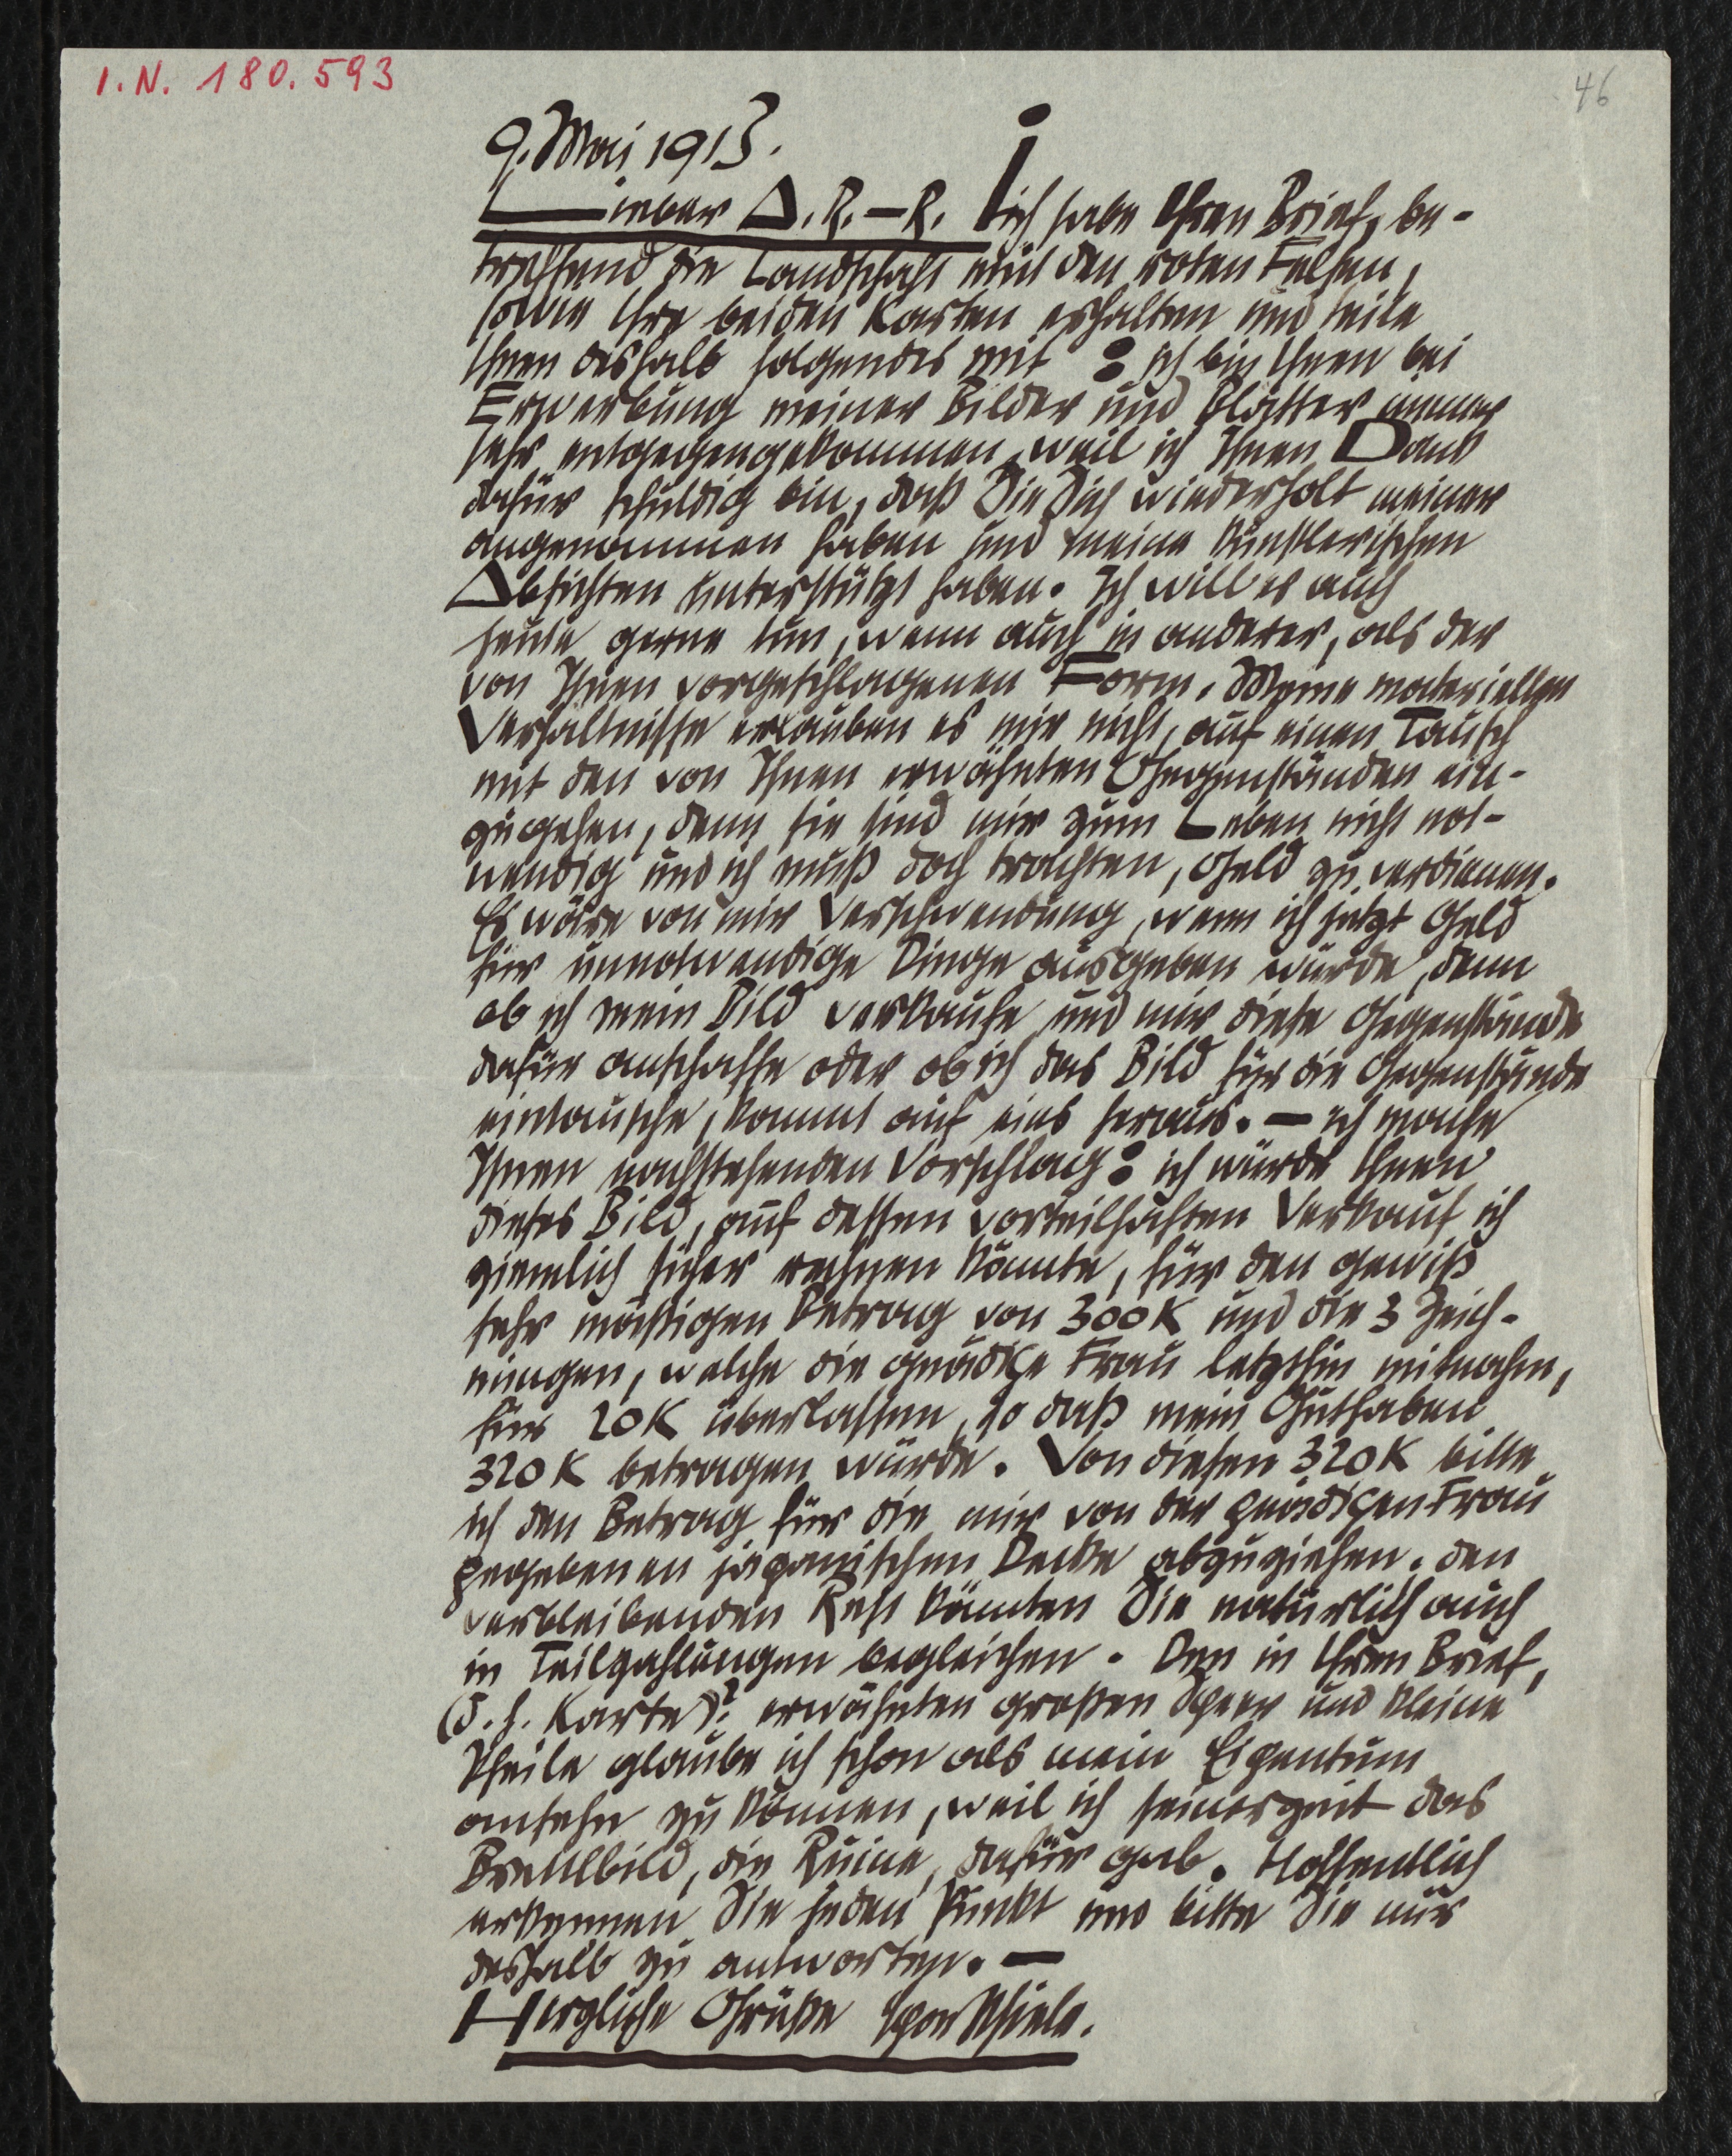 I.N. 180.593
46
9. Mai 1913.
Lieber A. R.-R. ich habe Ihren Brief, be-
treffend die Landschaft mit den roten Felsen,
sowie Ihre beiden Karten erhalten und teile
Ihnen deshalb folgendes mit : ich bin Ihnen bei
Erwerbung meiner Bilder und Blätter immer
sehr entgegengekommen, weil ich Ihnen Dank
dafür schuldig bin, daß Sie Sich wiederholt meiner
angenommen haben und meine künstlerischen
Absichten unterstützt haben. Ich will es auch
heute gerne tun, wenn auch in anderer, als der
von Ihnen vorgeschlagenen Form. Meine materiellen
Verhältnisse erlauben es mir nicht, auf einen Tausch
mit den von Ihnen erwähnten Gegenständen ein-
zugehen, denn sie sind mir zum Leben nicht not-
wendig und ich muß doch trachten, Geld zu verdienen.
Es wäre von mir Verschwendung, wenn ich jetzt Geld
für unnotwendige Dinge ausgeben würde, denn
ob ich mein Bild verkaufe und mir diese Gegenstände
dafür anschaffe oder ob ich das Bild für die Gegenstände
eintausche, kommt auf eins heraus. — ich mache
Ihnen nachstehenden Vorschlag : ich würde Ihnen
dieses Bild, auf dessen vorteilhaften Verkauf ich
ziemlich sicher rechnen könnte, für den gewiß
sehr mäßigen Betrag von 300 K und die 3 Zeich-
nungen, welche die gnädige Frau letzthin mitnahm,
für 20 K überlassen, so daß mein Guthaben
320 K betragen würde. Von diesen 320 K bitte
ich den Betrag für die mir von der gnädigen Frau
gegebenen japanischen Decke abzuziehen. den
verbleibenden Rest könnten Sie natürlich auch
in Teilzahlungen begleichen. Den in Ihrem Brief,
(d. h. Karte)? erwähnten großen Speer und kleine
Pfeile glaube ich schon als mein Eigentum
ansehn zu können, weil ich seinerzeit das
Brettlbild, die Ruine, dafür gab. Hoffentlich
erkennen Sie jeden Punkt und bitte Sie mir
deshalb zu antworten. —
Herzliche Grüße Egon Schiele.